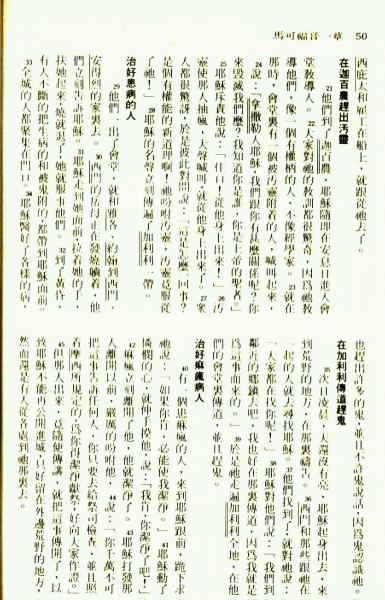 馬可福音一章 50
西庇太和雇工在船上,就跟從祂去了。
在迦百農趕出汚靈
21 他們到了迦百農,耶穌隨即在安息日進入會
堂教導人。22 大家對祂的教訓都很驚奇,因爲祂教
導他們,像一個有權柄的人,不像經學家。23 就在
那時,會堂裏有一個被汚靈附着的人,喊叫起來,
24 說:「拿撒勒人耶穌,我們跟你有甚麼關係呢?你
來毀滅我們麼?我知道你是誰,你是上帝的聖者。」
25 耶穌斥責他說:「住口!從他身上出來!」26 汚
靈使那人抽瘋,大聲喊叫就從他身上出來了。27 衆
人都很驚訝,於是彼此對問說:「這是怎麼回事?
是個有權能的新道理啊!祂吩咐汚靈,汚靈竟服從
了祂!」28 耶穌的名聲立刻傳遍了加利利一帶。
治好患病的人
29 他們一出了會堂,就和雅各、約翰到西門、
安得烈的家裏去。30 西門的岳母正在發燒躺着,他
們立刻告訴耶穌。31 耶穌走到她面前,拉着她的手,
扶她起來,燒就退了,她就服事他們。32 到了黃昏,
有人不斷的把生病的和被鬼附的,都帶到耶穌面前。
33 全城的人都聚集在門口。34 耶穌醫好了各樣的病,
也趕出許多的鬼,並且不許鬼說話,因爲鬼認識祂。
在加利利傳道趕鬼
35 次日凌晨,天還沒有亮,耶穌起身出去,來
到荒野的地方,在那裏禱告。36 西門和那些跟祂在
一起的人就去尋找耶穌。37 他們找到了,就對祂說:
「大家都在找你呢!」38 耶穌對他們說:「我們到
鄰近的鄉鎮去吧!我也好在那裏傳道,因爲我就是
爲這事而來的。」39 於是祂走遍加利利全地,在他
們的會堂裏傳道,並且趕鬼。
治好痲瘋病人
40 有一個患痲瘋的人,來到耶穌跟前,跪下求
祂說:「如果你肯,必能使我潔淨。」41 耶穌動了
憐憫的心,就伸手摸他,說:「我肯,你潔淨了吧!」
42 痲瘋立刻離開了他,他就潔淨了。43 耶穌打發那
人離開以前,嚴厲的吩咐他,44 說:「你千萬不可
把這事告訴任何人,你只要去給祭司檢查,並且照
着摩西所規定的,爲你得潔淨獻祭,好向人家作證。」
45 但那人出來,竟隨便傳講,就把這事傳開了,以
致耶穌不能再公開進城,只好留在外邊荒野的地方,
然而還是有人從各處到祂那裏去。